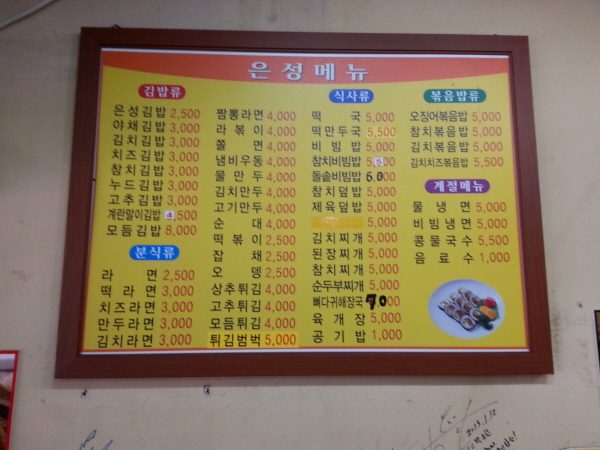 은성메뉴
김밥류
은성김밥 2,500
야채김밥 3,000
김치김밥 3,000
치즈김밥 3,000
참치김밥 3,000
누드김밥 3,000
고추김밥 3,000
계란말이김밥 4,500
모듬김밥 8,000
분식류
라면 2,500
떡라면 3,000
치즈라면 3,000
만두라면 3,000
김치라면 3,000
짬뽕라면 4,000
라볶이 4,000
쫄면 4,000
냄비우동 4,000
물만두 4,000
김치만두 4,000
고기만두 4,000
순대 4,000
떡볶이 2,500
잡채 2,500
오뎅 2,500
상추튀김 4,000
고추튀김 4,000
모듬튀김 4,000
튀김범벅 5,000
식사류
떡국 5,000
떡만두국 5,500
비빔밥 5,000
참치비빔밥 5,500
돌솥비빔밥 6000
참치덮밥 5,000
제육덮밥 5,000
5,000
김치찌개 5,000
된장찌개 5,000
참치찌개 5,000
순두부찌개 5,000
뼈다귀해장국 7000
육개장 5,000
공기밥 1,000
볶음밥류
오징어볶음밥 5,000
참치볶음밥 5,000
김치볶음밥 5,000
김치치즈볶음밥 5,500
계절메뉴
물냉면 5,000
비빔냉면 5,000
콩물국수 5,500
음료수 1,000
2013.1.12